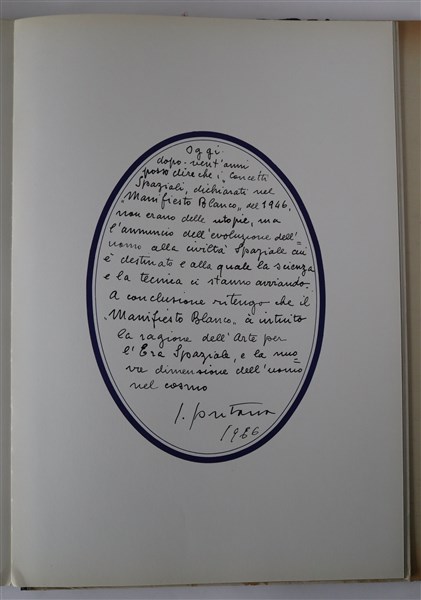 Oggi
dopo vent'anni
posso dire che i concetti
Spaziali, dichiarati nel
"Manifiesto Blanco" del 1946,
non erano delle utopie, ma
l'annuncio dell'evoluzione dell'=
uomo alla civiltà Spaziale cui
é destinato e alla quale la scienza
e la tecnica ci stanno avviando.
A conclusione ritengo che il
"Manifiesto Blanco" à intuito
la ragione dell'Arte per
l'Era Spaziale, e la nuo=
va dimensione dell'uomo
nel cosmo
l. fontana
1966